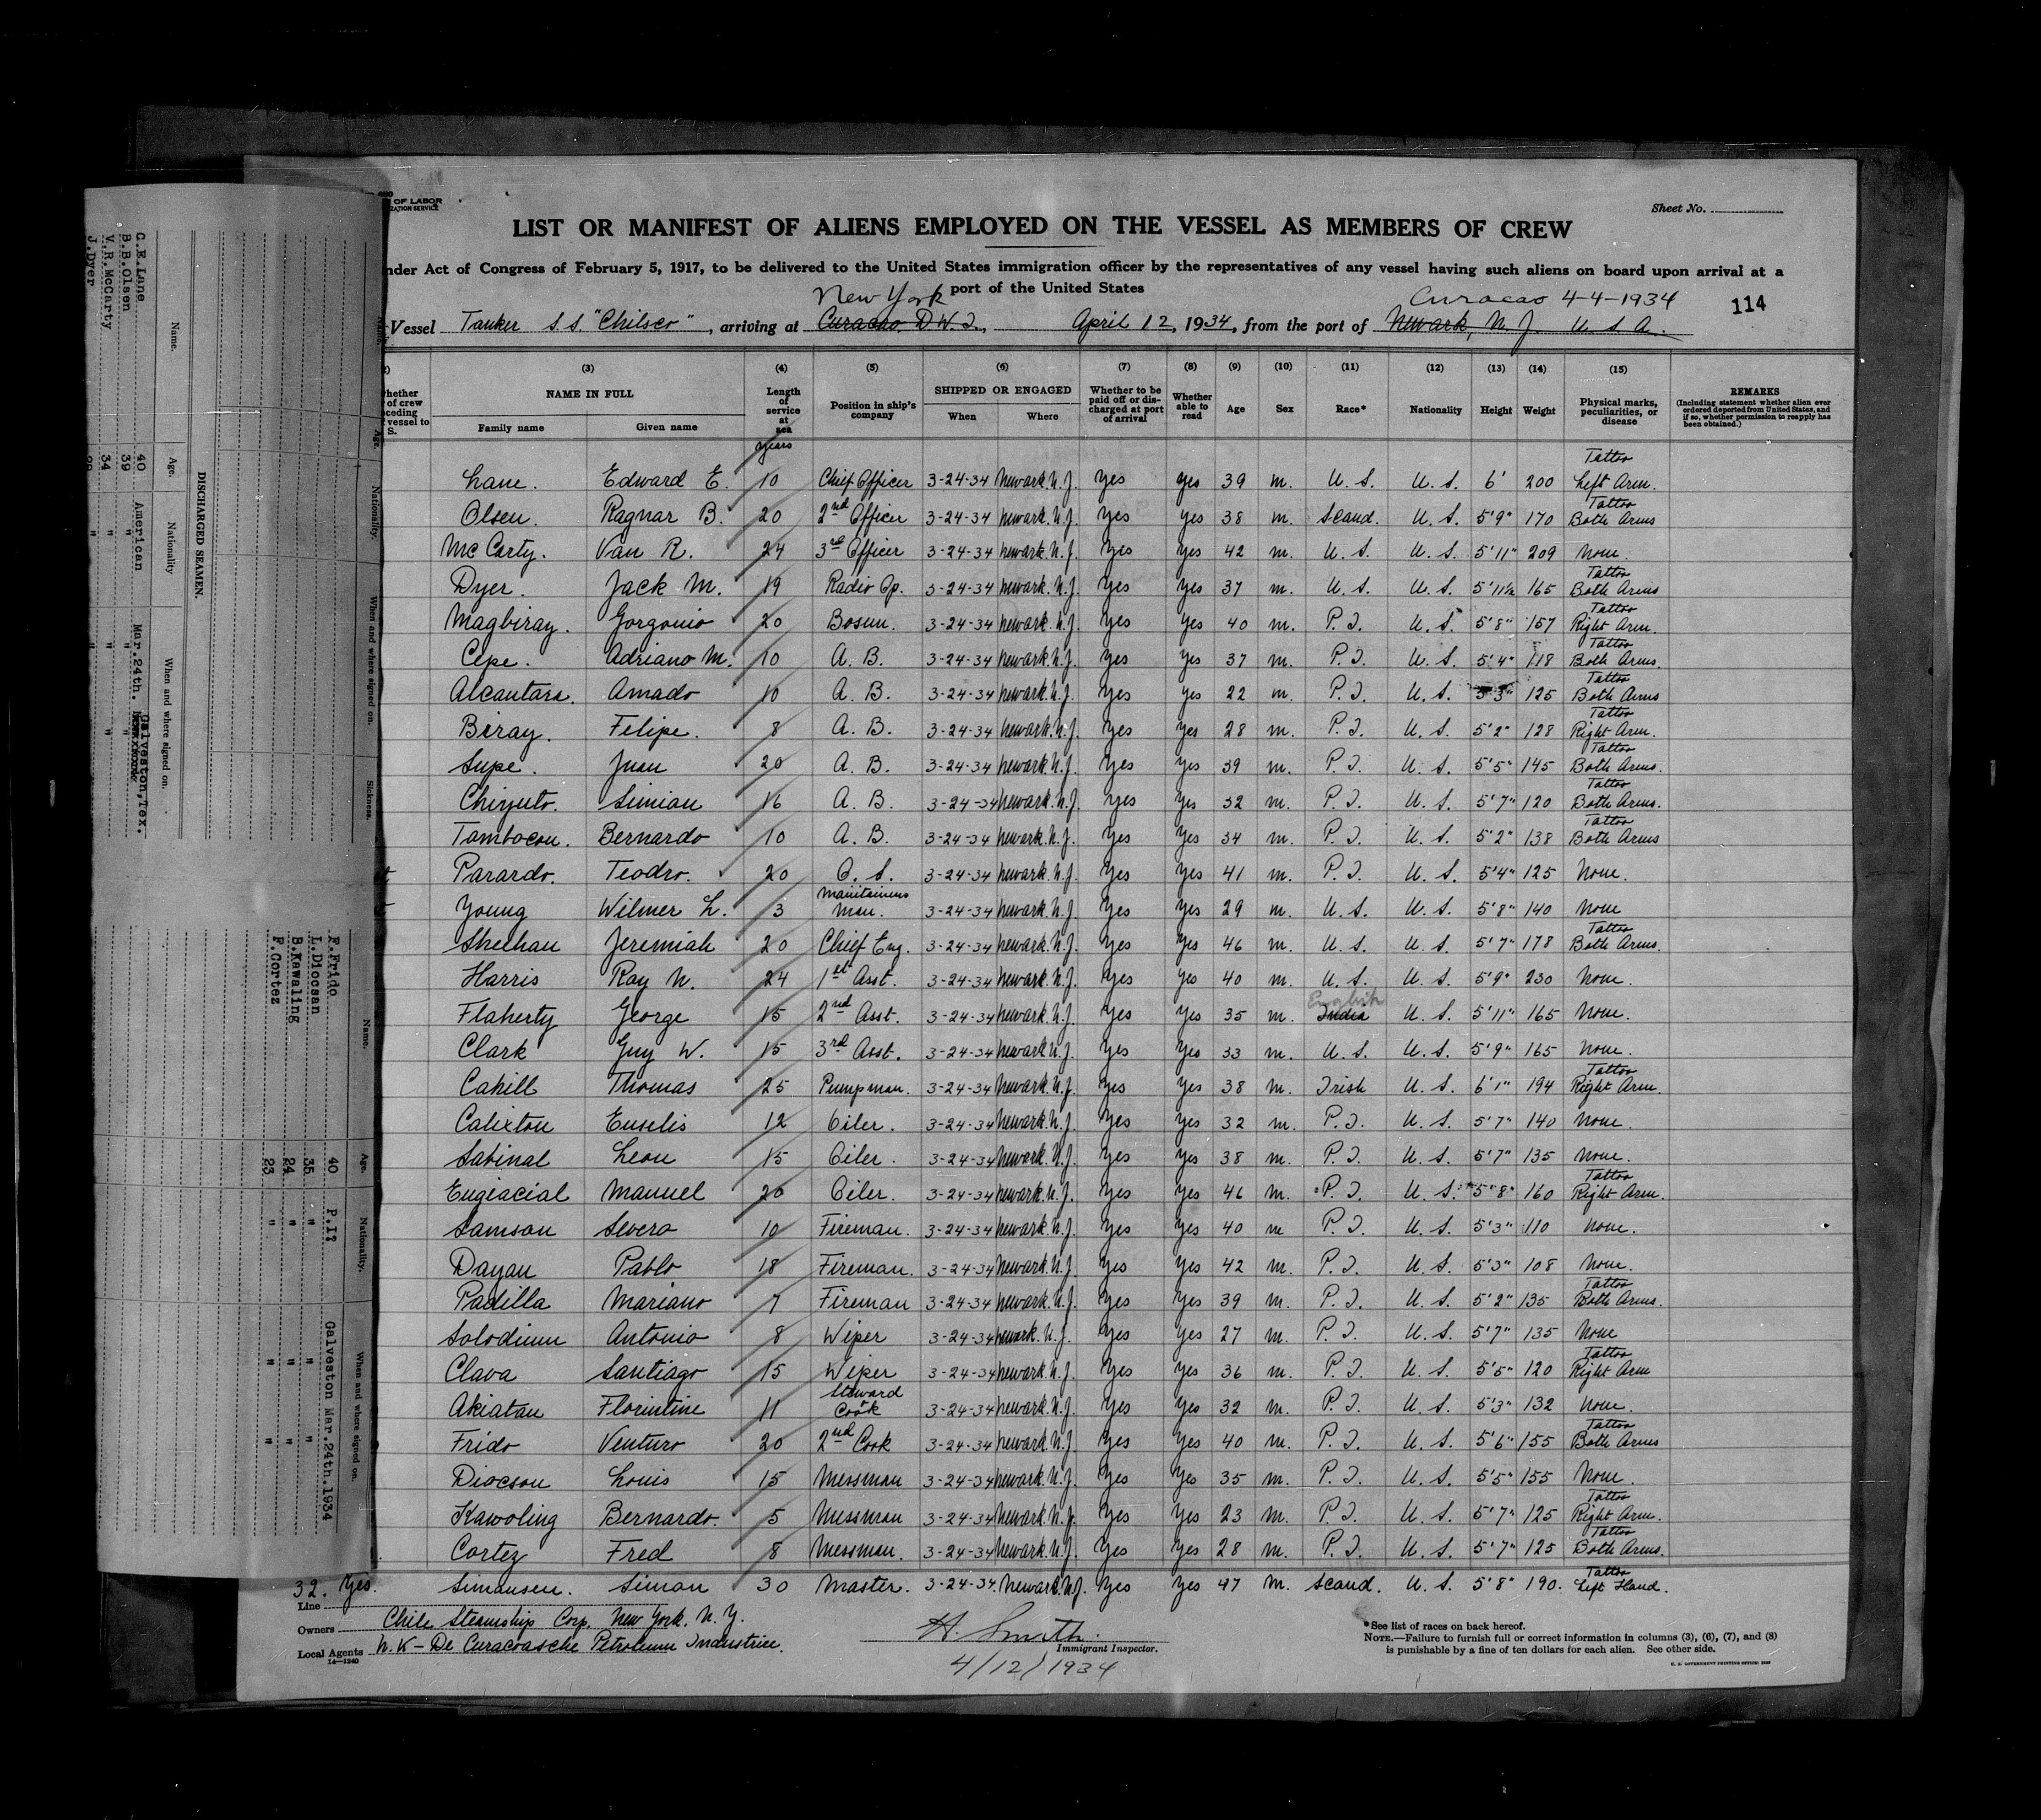 OF LABOR
ZATION SERVICE
Sheet No.
LIST OR MANIFEST OF ALIENS EMPLOYED ON THE VESSEL AS MEMBERS OF CREW
nder Act of Congress of February 5, 1917, to be delivered to the United States immigration officer by the representatives of any vessel having such aliens on board upon arrival at a
port of the United States
New York Curacao 4-4-1934 114
Vessel Tanker S.S. "Chilsco", arriving at Curacao, D.W.I., April 12, 1934, from the port of Newark, N. J. U. S. A.
(3) (4) (5) (6) (7) (8) (9) (10) (11) (12) (13) (14) (15)
NAME IN FULL Family name Given name Length of service at sea Position in ship's company SHIPPED OR ENGAGED When Where Whether to be paid off or discharged at port of arrival Whether able to read Age Sex Race* Nationality Height Weight Physical marks, peculiarities, or disease REMARKS (Including statement whether alien ever ordered deported from United States, and if so, whether permission to reapply has been obtained.)
years
Lane. Edward E. 10 Chief Officer 3-24-34 Newark. N.J. Yes Yes 39 m. U. S. U. S. 6' 200 Tattoo Left Arm.
Olsen. Ragnar B. 20 2nd Officer 3-24-34 Newark. N.J. Yes Yes 38 m. Scand. U. S. 5'9" 170 Tattoo Both Arms
McCarty. Van R. 24 3rd Officer 3-24-34 Newark. N.J. Yes Yes 42 m. U. S. U. S. 5'11" 209 None.
Dyer. Jack M. 19 Radio Op. 3-24-34 Newark. N.J. Yes Yes 37 m. U. S. U. S. 5'11½ 165 Tattoo Both Arms
Magbiray. Gorgonio 20 Bosun. 3-24-34 Newark. N.J. Yes Yes 40 m. P. I. U. S. 5'8" 157 Tattoo Right Arm.
Cepe. Adriano M. 10 A. B. 3-24-34 Newark. N.J. Yes Yes 37 m. P. I. U. S. 5'4" 118 Tattoo Both Arms.
Alcantara. Amado 10 A. B. 3-24-34 Newark. N.J. Yes Yes 22 m. P. I. U. S. 5'3" 125 Tattoo Both Arms
Beray. Felipe. 8 A. B. 3-24-34 Newark. N.J. Yes Yes 28 m. P. I. U. S. 5'2" 128 Tattoo Right Arm.
Supe. Juan 20 A. B. 3-24-34 Newark. N.J. Yes Yes 39 m. P. I. U. S. 5'5" 145 Tattoo Both Arms.
Chizuto. Simian 16 A. B. 3-24-34 Newark. N.J. Yes Yes 32 m. P. I. U. S. 5'7" 120 Tattoo Both Arms.
Tambocon. Bernardo 10 A. B. 3-24-34 Newark. N.J. Yes Yes 34 m. P. I. U. S. 5'2" 138 Tattoo Both Arms
Parardo. Teodro. 20 O. S. 3-24-34 Newark. N.J. Yes Yes 41 m. P. I. U. S. 5'4" 125 None.
Young Wilmer L. 3 Maintainens man. 3-24-34 Newark. N.J. Yes Yes 29 m. U. S. U. S. 5'8" 140 None
Sheehan Jeremiah 20 Chief Eng. 3-24-34 Newark. N.J. Yes Yes 46 m. U. S. U. S. 5'7" 178 Tattoo Both Arms.
Harris Ray N. 24 1st Asst. 3-24-34 Newark. N.J. Yes Yes 40 m. U. S. U. S. 5'9" 230 None.
Flaherty George 15 2nd Asst. 3-24-34 Newark. N.J. Yes Yes 35 m. English India U. S. 5'11" 165 None.
Clark Guy W. 15 3rd Asst. 3-24-34 Newark N.J. Yes Yes 33 m. U. S. U. S. 5'9" 165 None.
Cahill Thomas 25 Pumpman. 3-24-34 Newark. N.J. Yes Yes 38 m. Irish U. S. 6'1" 194 Tattoo Right Arm.
Calixton Euselis 12 Oiler. 3-24-34 Newark. N.J. Yes Yes 32 m. P. I. U. S. 5'7" 140 None.
Sabinal Leon 15 Oiler. 3-24-34 Newark. N.J. Yes Yes 38 m. P. I. U. S. 5'7" 135 None.
Eugiacial Manuel 20 Oiler. 3-24-34 Newark. N.J. Yes Yes 46 m. P. I. U. S. 5'8" 160 Tattoo Right Arm.
Samson Severo 10 Fireman. 3-24-34 Newark. N.J. Yes Yes 40 m P. I. U. S. 5'3" 110 None.
Dayan Pablo 18 Fireman. 3-24-34 Newark. N.J. Yes Yes 42 m. P. I. U. S. 5'3" 108 None.
Padilla Mariano 7 Fireman 3-24-34 Newark. N.J. Yes Yes 39 m. P. I. U. S. 5'2" 135 Tattoo Both Arms.
Solodium Antonio 8 Wiper 3-24-34 Newark. N.J. Yes Yes 27 m. P. I. U. S. 5'7" 135 None
Clava Santiago 15 Wiper 3-24-34 Newark. N.J. Yes Yes 36 m. P. I. U. S. 5'5" 120 Tattoo Right Arm
Akiatan Florintine 11 Steward Cook 3-24-34 Newark. N.J. Yes Yes 32 m. P. I. U. S. 5'3" 132 None.
Frido Venturo 20 2nd Cook 3-24-34 Newark. N.J. Yes Yes 40 m. P. I. U. S. 5'6" 155 Tattoo Both Arms
Diocson Louis 15 Messman 3-24-34 Newark. N.J. Yes Yes 35 m. P. I. U. S. 5'5" 155 None.
Kawoling Bernardo. 5 Messman 3-24-34 Newark. N.J. Yes Yes 23 m. P. I. U. S. 5'7" 125 Tattoo Right Arm.
Cortez Fred 8 Messman. 3-24-34 Newark. N.J. Yes Yes 28 m. P. I. U. S. 5'7" 125 Tattoo Both Arms.
32. Yes. Simonsen. Simon 30 Master. 3-24-34. Newark. N.J. Yes Yes 47 m. Scand. U. S. 5'8" 190. Tattoo Left Hand.
Line
Owners Chile Steamship Corp. New York. N. Y.
Local Agents N.K - De Curacoasche Petroleum Industrice
14-1240
H. Smith.
Immigrant Inspector.
4/12/1934
*See list of races on back hereof.
NOTE.—Failure to furnish full or correct information in columns (3), (6), (7), and (8)
is punishable by a fine of ten dollars for each alien. See other side.
DISCHARGED SEAMEN.
Name. Age. Nationality When and where signed on.
C.E.Lane 40 American Mar.24th. Galveston,Tex.
B.B.Olsen 39 " " "
V.R.McCarty 34 " " "
J.Dyer
Name. Age. Nationality. When and where signed on. Sickness.
F.Frido 40 P.I? Galveston Mar.24th.1934
L.Diocsan 35 " " "
B.Kawaling 24 " " "
F.Cortez 23 " " "